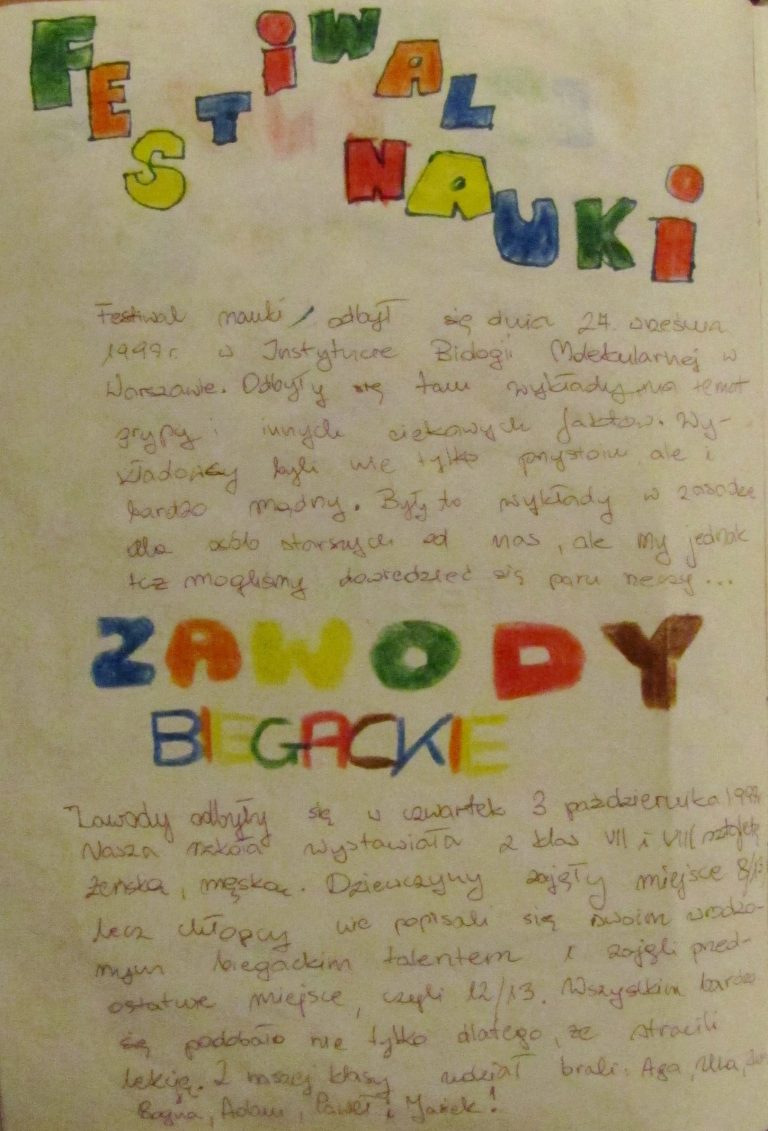 FESTiWAL
NAUKi
Festiwal nauki odbył się dnia 24 września
1999r. w Instytucie Biologii Molekularnej w
Warszawie. Odbyły się tam wykłady na temat
grypy i innych ciekawych faktów. Wy-
kładowcy byli nie tylko przystojni ale i
bardzo mądrzy. Były to wykłady w zasadzie
dla osób starszych od nas, ale my jednak
też mogliśmy dowiedzieć się paru rzeczy...
ZAWODY
BIEGACKIE
Zawody odbyły się w czwartek 3 października
Nasza szkoła wystawiała z klas VII i VIII sztafetę
żeńską, męską. Dziewczyny zajęły miejsce 8/13
lecz chłopcy nie popisali się swoim wrodzo-
nym biegackim talentem i zajęli przed-
ostatnie miejsce, czyli 12/13. Wszystkim bardzo
się podobało nie tylko dlatego, że stracili
lekcję. Z naszej klasy udział brali: Aga, Ula,
Bogna, Adam, Paweł i Jasiek!